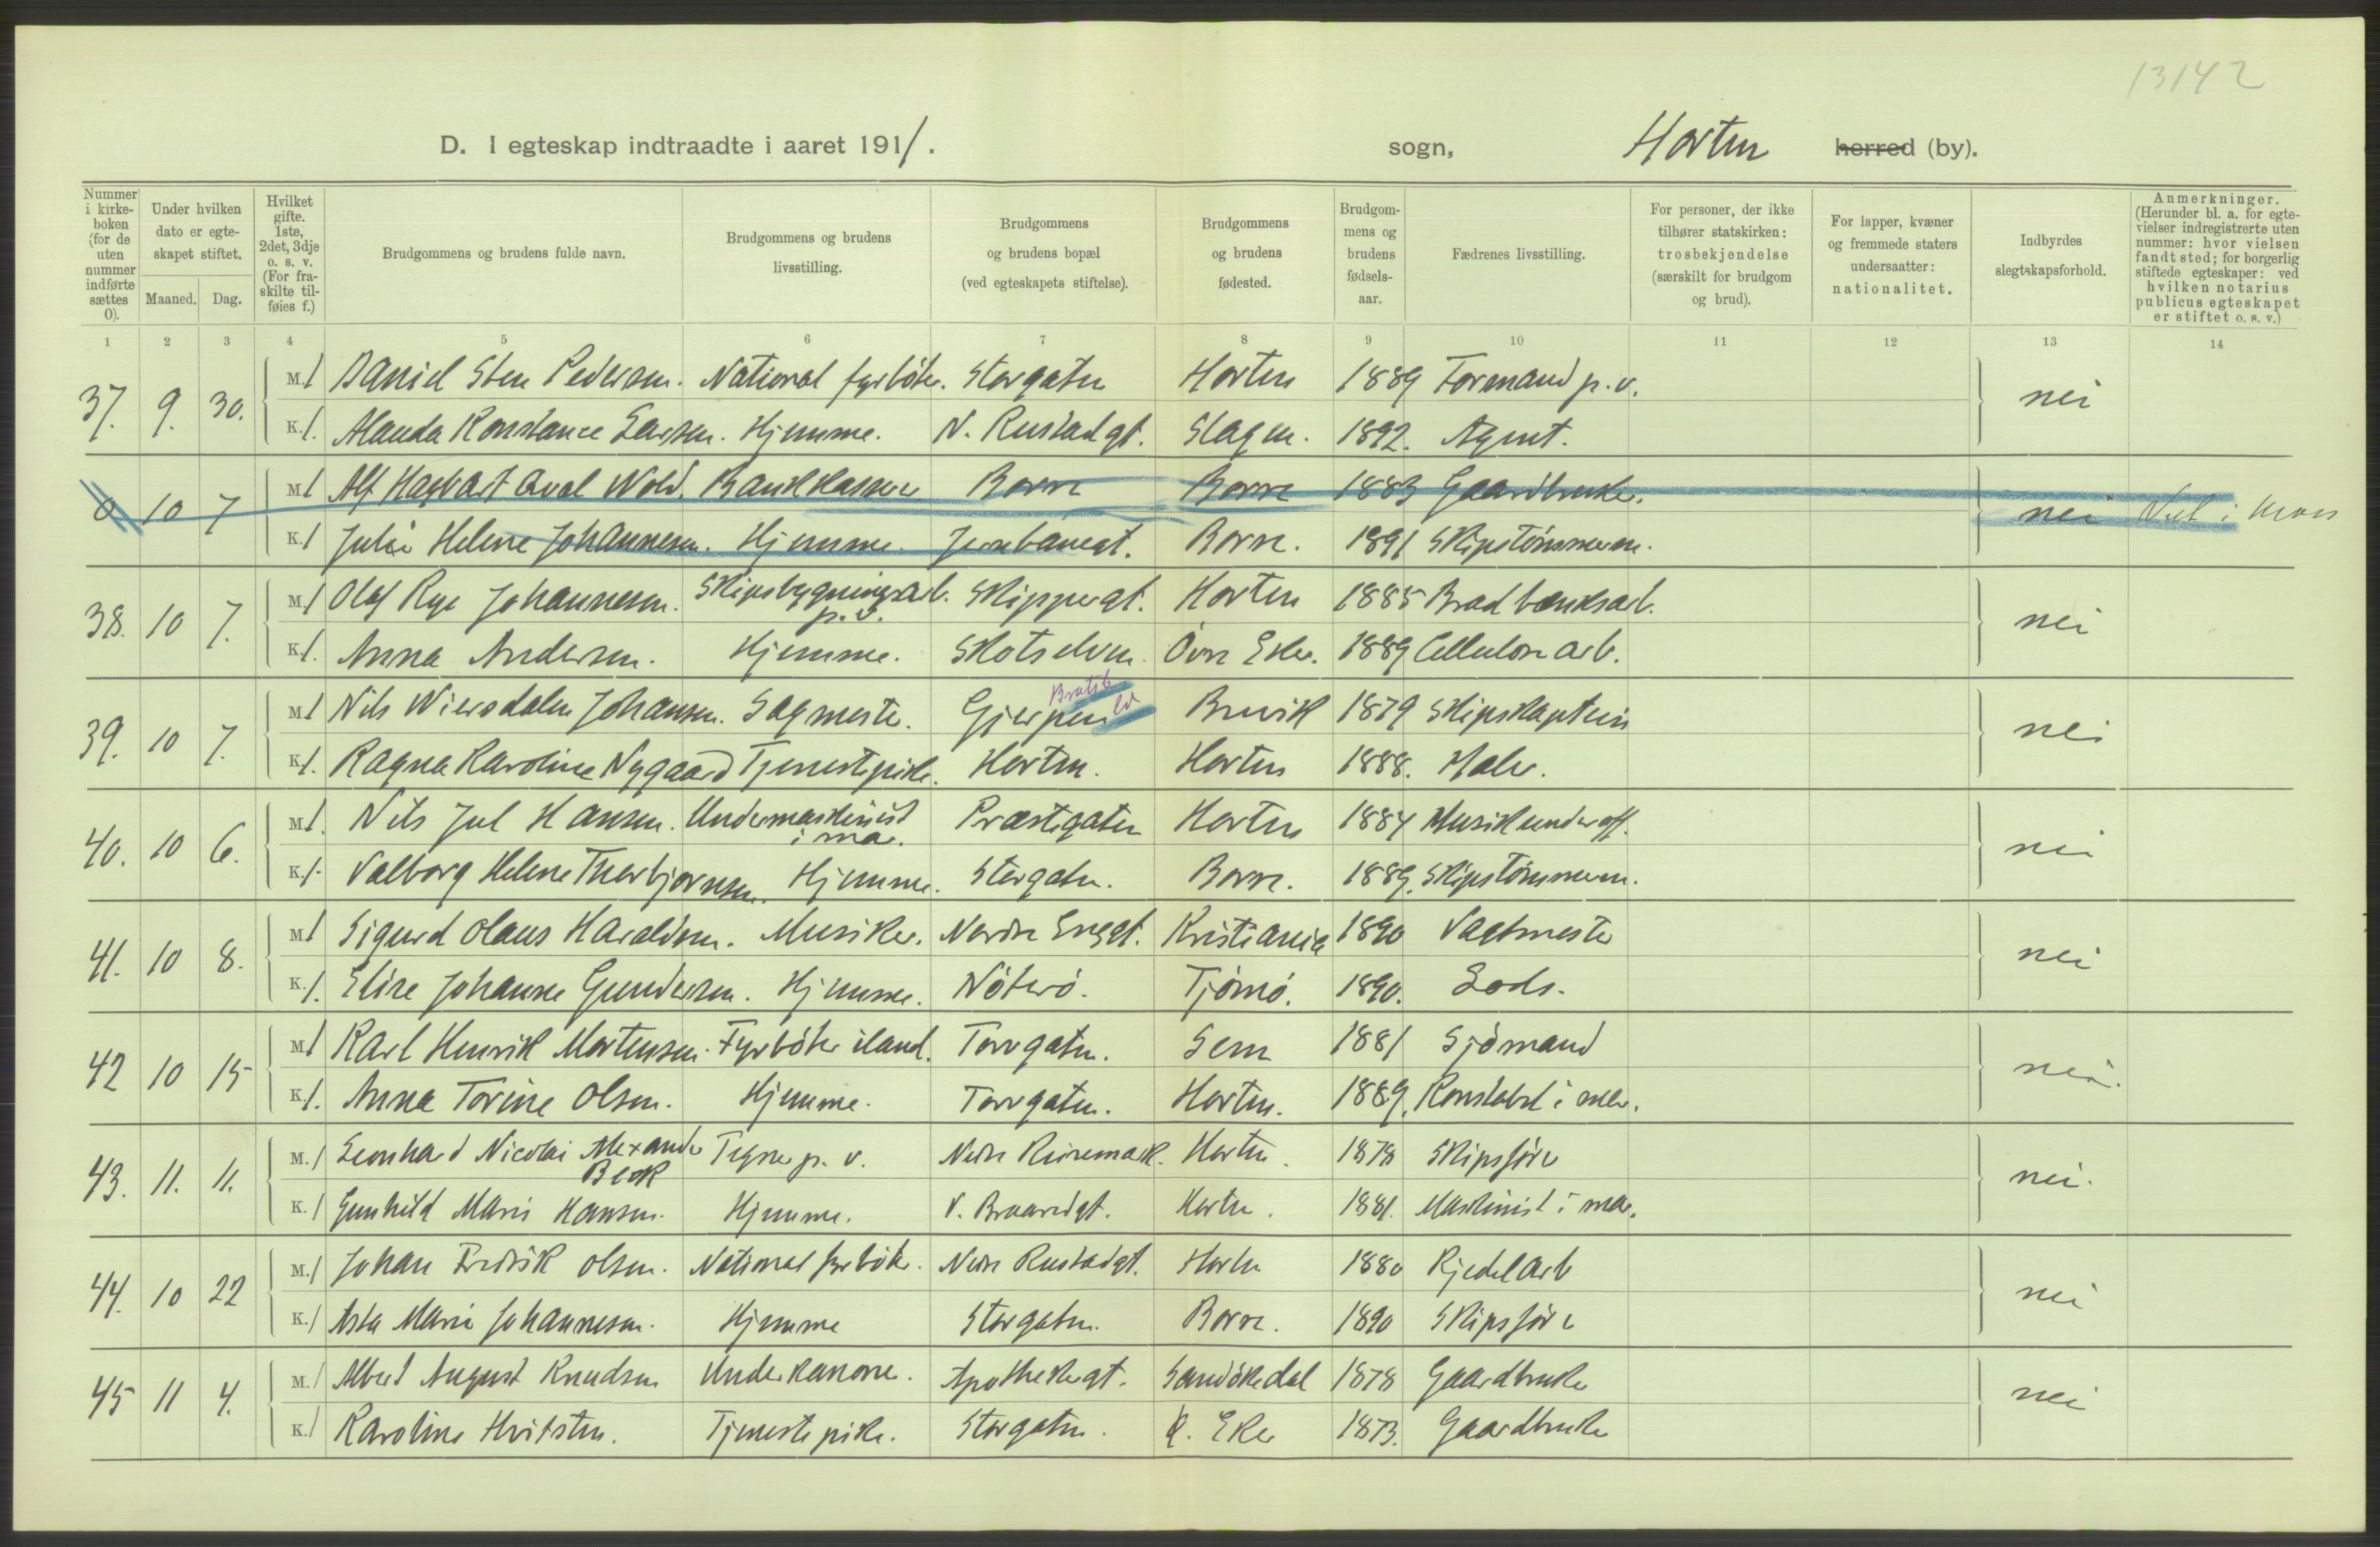 13142
D. I egteskap indtraadte i aaret 1911. sogn, Horten herred (by).
Nummer i kirkeboken (for de uten nummer indførte sættes 0).
Under hvilken dato er egteskapet stiftet.
Maaned. Dag.
Hvilket gifte. 1ste, 2det, 3dje o. s. v. (For fraskilte tilføies f.)
Brudgommens og brudens fulde navn.
Brudgommens og brudens livsstilling.
Brudgommens og brudens bopæl (ved egteskapets stiftelse).
Brudgommens og brudens fødested.
Brudgommens og brudens fødselsaar.
Fædrenes livsstilling.
For personer, der ikke tilhører statskirken: trosbekjendelse (særskilt for brudgom og brud).
For lapper, kvæner og fremmede staters undersaatter: nationalitet.
Indbyrdes slegtskapsforhold.
Anmerkninger. (Herunder bl. a. for egtevielser indregistrerte uten nummer: hvor vielsen fandt sted; for borgerlig stiftede egteskaper: ved hvilken notarius publicus egteskapet er stiftet o. s. v.)
1 2 3 4 5 6 7 8 9 10 11 12 13 14
37. 9. 30. M. 1 Daniel Sten Pedersen. National fyrböter. Storgaten Horten 1889 Formand p. v. nei
K. 1. Alauda Konstance Larsen. Hjemme. N. Rustad gt. Slagen. 1892. Agent.
0 10 7 M. 1 Alf Hagbart Aval Wold. Bankkasserer Borre Borre 1883 Gaardbruker. nei Viet i
K. 1 Julie Helene Johannesen. Hjemme. Jernbanegt. Borre. 1891 Skipstömmerm.
38. 10 7. M. 1 Olaf Rye Johannesen. Skipsbygningsarb. p. v. Skippergt. Horten 1885 nei
K. 1. Anna Andersen. Hjemme. Skotselven Övre Eker. 1889 Cellulose arb.
39. 10 7. M. 1 Nils Wiersdalen Johansen. Sagmester. Gjerpen Bratsb Bruvik 1879 Skipskaptein nei
K. 1. Ragna Karoline Nygaard Tjenestepike. Horten. Horten 1888. Maler.
40. 10 6. M. 1. Nils Jul Hansen. Undermaskinist i mar. Præstegaten Horten 1884 Musikunderoff. nei
K. 1. Valborg Helene Thorbjörnsen. Hjemme. Storgaten. Borre. 1889. Skipstömmerm.
41. 10 8. M. 1 Sigurd Olaus Haraldsen. Musiker. Nordre Enggt. Kristiania 1890 Vagtmester nei
K. 1. Elise Johanne Gundersen. Hjemme. Nöterö. Tjömö. 1890. Lods.
42 10 15 M. 1 Karl Henrik Mortensen. Fyrböter iland. Torvgaten. Sem 1881 Sjömand nei.
K. 1. Anna Torine Olsen. Hjemme. Torvgaten. Horten. 1889. Konstabel i mar.
43. 11. 11. M. 1 Leonhard Nicolai Alexander Beck Tegner p. v. Nedre Keisemark. Horten. 1878 Skipsförer nei.
K. 1 Gunhild Marie Hansen. Hjemme. V. Braarudgt. Horten. 1881. Maskinist i mar.
44. 10 22 M. 1 Johan Fredrik Olsen. National fyrböter. Nedre Rustadgt. Horten 1880 Kjedelarb nei
K. 1 Asta Marie Johannesen. Hjemme Storgaten. Borre. 1890 Skipsförer
45 11 4. M. 1 Albert August Knudsen Underkanoner. Apothekergt. Sandökedal 1878 Gaardbruker nei
K. 1 Karoline Hvitsten. Tjenestepike. Storgaten. Eker 1873. Gaardbruker